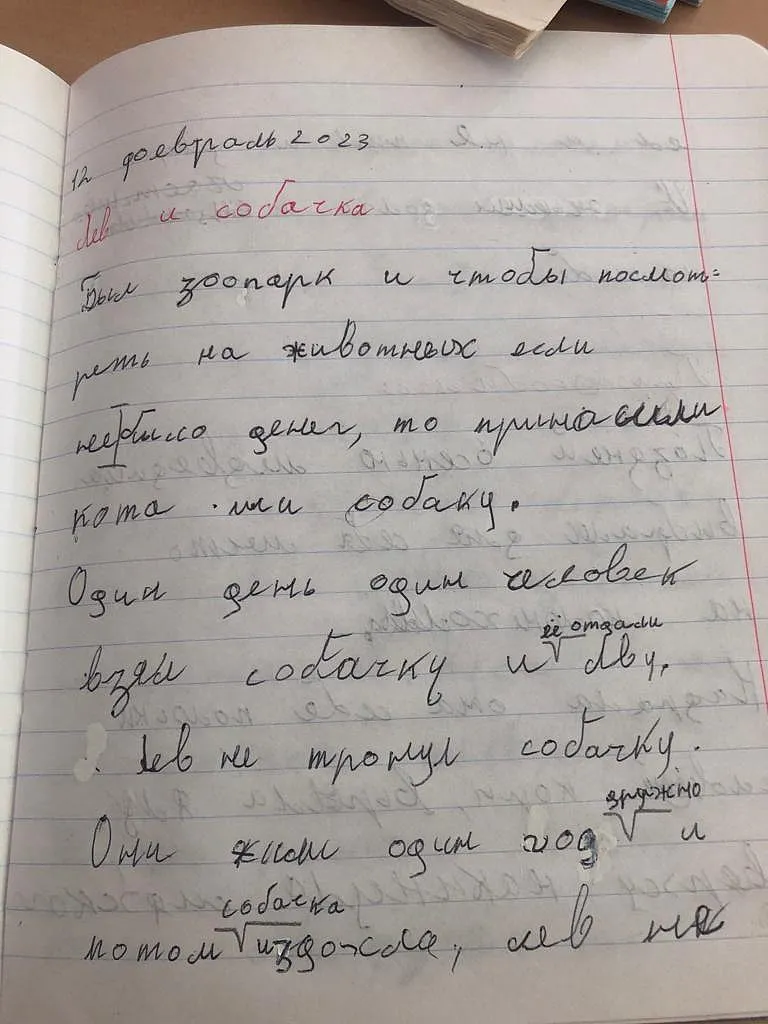 12 февраль 2023
Лев и собачка
Был зоопарк и чтобы посмот=
реть на животных если
не было денег, то принасили
кота или собаку.
Один день один человек
взял собачку и её отдали льву.
Лев не тронул собачку.
Они жили один год дружно и
потом собачка издохла, лев не